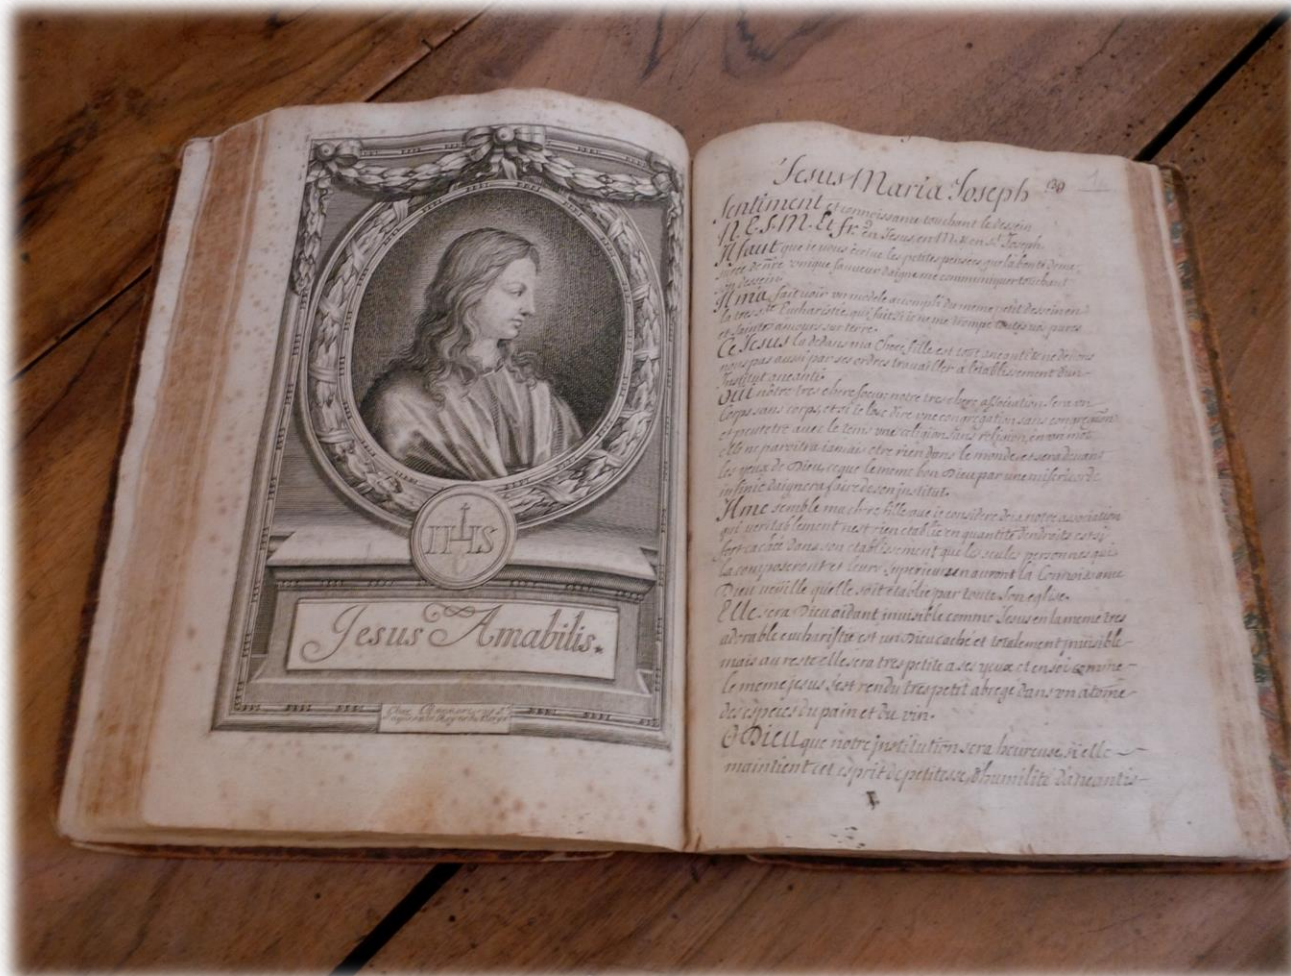 IHS
Jesus Amabilis.
Jesus Maria Joseph
Sentiment et connoissance touchant le dessein
en Jesus en M. et en St. Joseph.
Il faut que je vous ecrive les petites pensees que la bonté divine
de nôtre unique sauveur daigne me communiquer touchant
ce dessein.
Il m'a fait voir un modele acompli du meme petit dessein en
la tres Ste. Eucharistie, qui fait si je ne me trompe
et saintes amours sur terre.
Ce Jesus la dedans ma chere fille est tout
nous pas aussi par ses ordres travailler a l'etablissement d'un
Institut aneanti.
Oui nôtre tres chere soeur notre tres chere association sera un
Corps sans corps, et si je l'ose dire une congregation sans congregation
et peutetre avec le tems une religion sans religion, en un mot
elle ne paroitra jamais etre rien dans le monde, et sera devant
les yeux de Dieu ce que le meme bon Dieu par une misericorde
infinie daignera faire de son institut.
Il me semble ma chere fille que je considere deja notre association
qui veritablement n'est rien etablie en quantité d'endroits
fort cachée dans son etablissement que les seules personnes qui
la composeront et leurs superieurs en auront la Connoissance
Dieu veüille qu'elle soit etablie par toute son eglise.
Elle sera Dieu aidant invisible comme Jesus en la meme tres
adorable eucharistie est un Dieu caché et totalement invisible
mais au reste elle sera tres petite a ses yeux et en soi comme
le meme jesus s'est rendu tres petit abregé dans un atome
des especes du pain et du vin.
O Dieu que notre institution sera heureuse si elle
maintient cet esprit de petitesse, d'humilité d'aneantis-